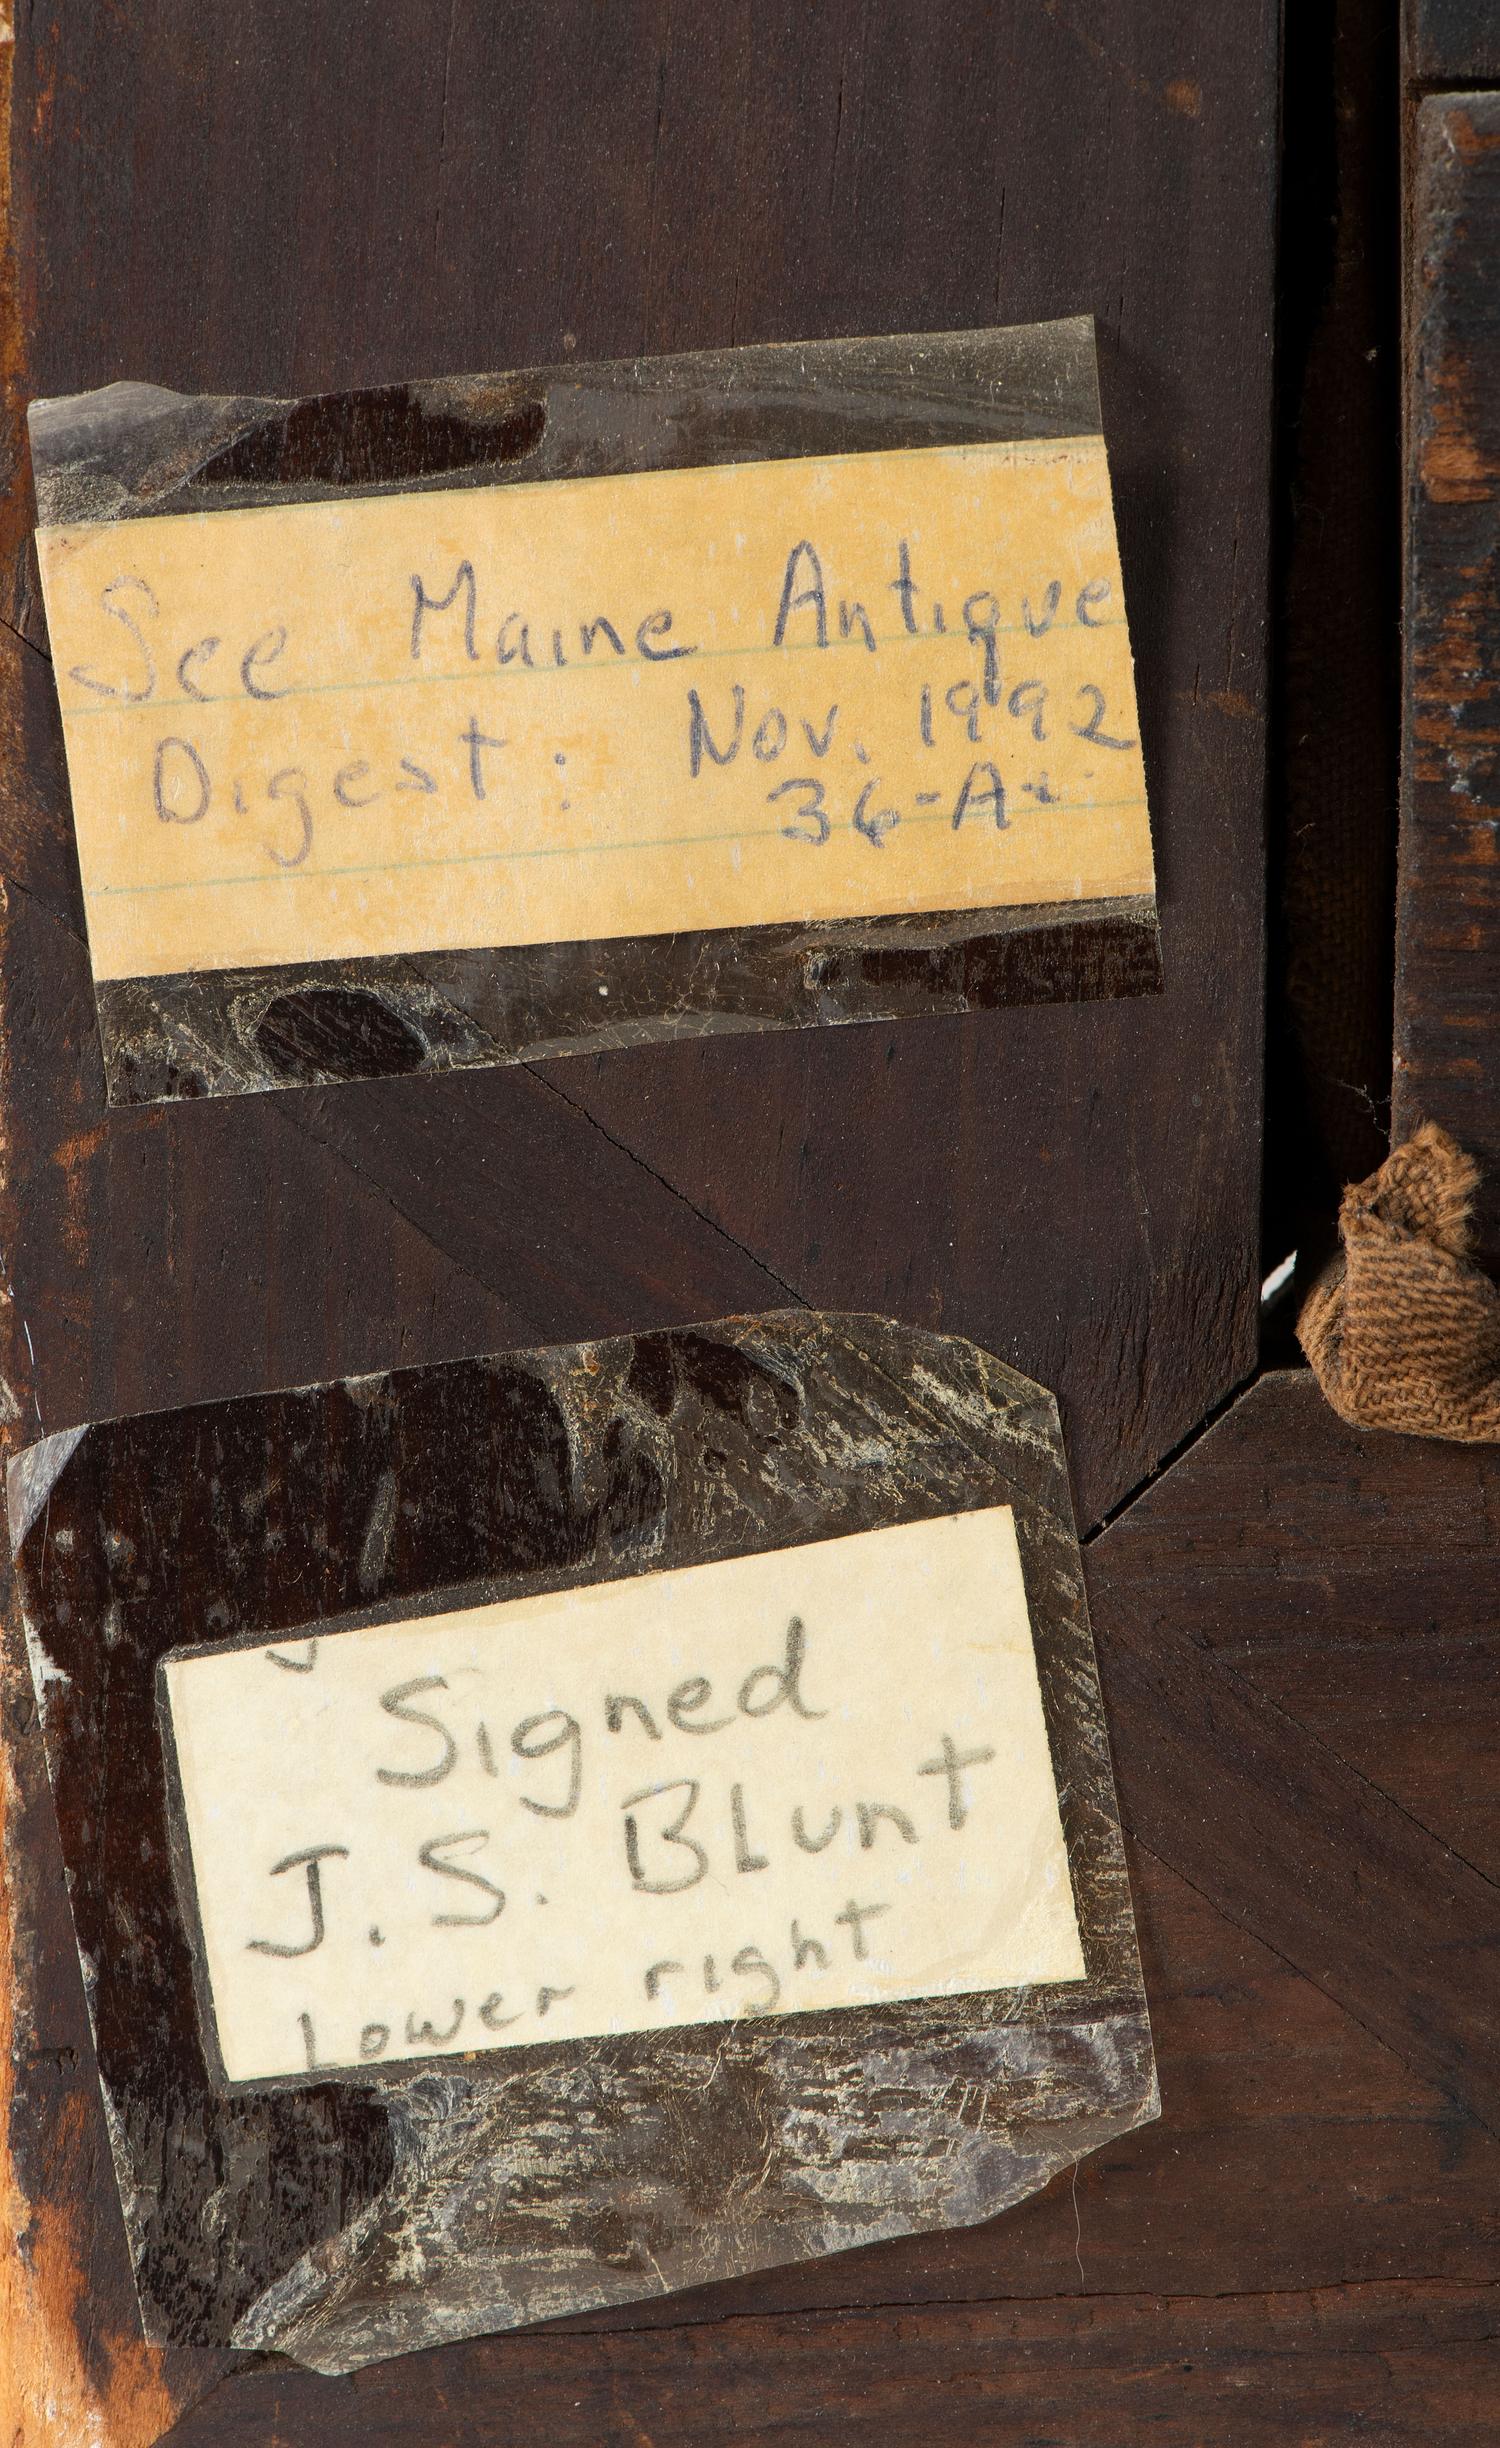 See Maine Antique
Digest: Nov. 1992
36-A
Signed
J.S. Blunt
Lower right